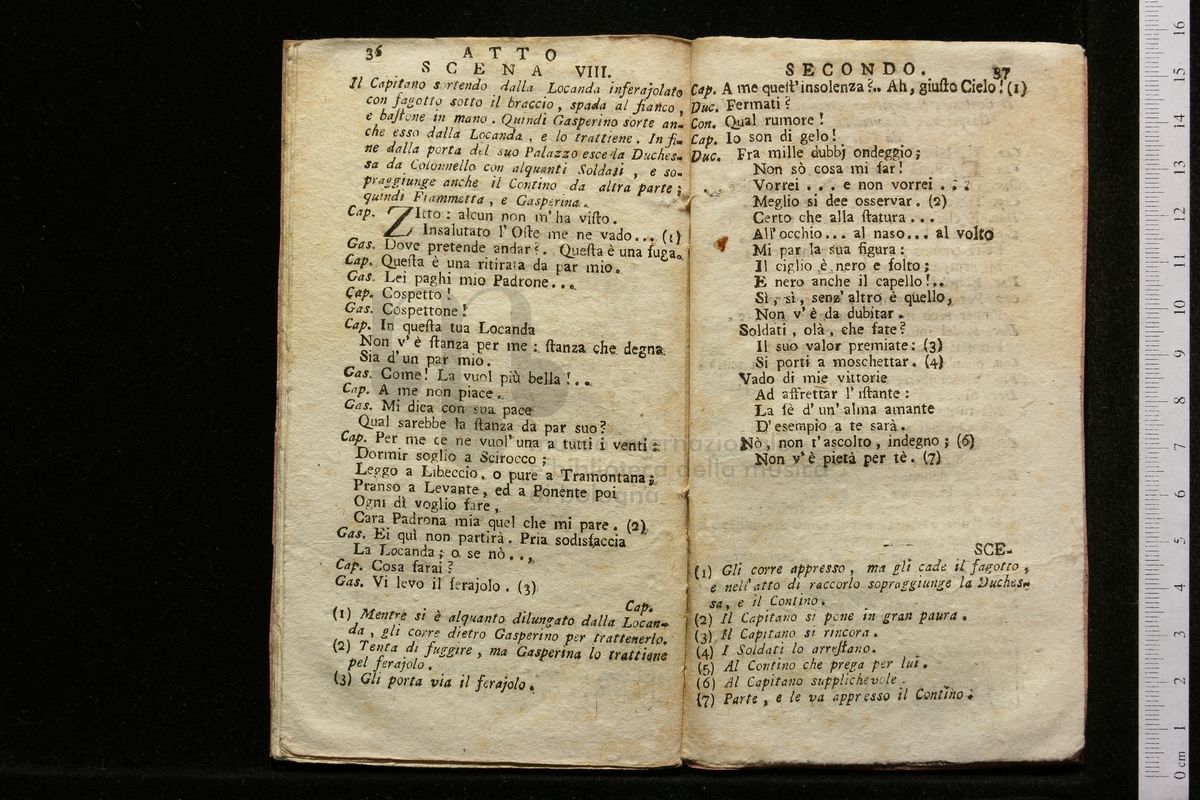 36
ATTO
SCENA VIII.
Il Capitano sortendo dalla Locanda inferajolato
con fagotto sotto il braccio, spada al fianco,
e baſtone in mano. Quindi Gasperino sorte an-
che esso dalla Locanda, e lo trattiene. In fi-
ne dalla porta del suo Palazzo esce la Duches-
sa da Colonnello con alquanti Soldati, e so-
praggiunge anche il Contino da altra parte;
quindi Fiammetta, e Gasperina.
Cap. ZItto: alcun non m'ha viſto.
Insalutato l'Oſte me ne vado... (1)
Gas. Dove pretende andar?. Queſta è una fuga.
Cap. Queſta è una ritirata da par mio.
Gas. Lei paghi mio Padrone...
Cap. Cospetto!
Gas. Cospettone!
Cap. In queſta tua Locanda
Non v'è ſtanza per me: ſtanza che degna
Sia d'un par mio.
Gas. Come! La vuol più bella!..
Cap. A me non piace.
Gas. Mi dica con sua pace
Qual sarebbe la ſtanza da par suo?
Cap. Per me ce ne vuol'una a tutti i venti:
Dormir soglio a Scirocco;
Leggo a Libeccio, o pure a Tramontana;
Pranso a Levante, ed a Ponente poi
Ogni dì voglio fare,
Cara Padrona mia quel che mi pare. (2)
Gas. Ei quì non partirà. Pria sodisfaccia
La Locanda; o se nò...
Cap. Cosa farai?
Gas. Vi levo il ferajolo. (3)
Cap.
(1) Mentre si è alquanto dilungato dalla Locan-
da, gli corre dietro Gasperino per trattenerlo.
(2) Tenta di fuggire, ma Gasperina lo trattiene
pel ferajolo.
(3) Gli porta via il ferajolo.
SECONDO. 37
Cap. A me queſt'insolenza?.. Ah, giuſto Cielo! (1)
Duc. Fermati?
Con. Qual rumore!
Cap. Io son di gelo!
Duc. Fra mille dubbj ondeggio;
Non sò cosa mi far!
Vorrei... e non vorrei...
Meglio si dee osservar. (2)
Certo che alla ſtatura...
All'occhio... al naso... al volto
Mi par la sua figura:
Il ciglio è nero e folto;
E nero anche il capello!..
Sì, sì, senz'altro è quello,
Non v'è da dubitar.
Soldati, olà, che fate?
Il suo valor premiate: (3)
Si porti a moschettar. (4)
Vado di mie vittorie
Ad affrettar l'iſtante:
La fè d'un'alma amante
D'esempio a te sarà.
Nò, non t'ascolto, indegno; (6)
Non v'è pietà per tè. (7)
SCE-
(1) Gli corre appresso, ma gli cade il fagotto,
e nell'atto di raccorlo sopraggiunge la Duches-
sa, e il Contino.
(2) Il Capitano si pone in gran paura.
(3) Il Capitano si rincora.
(4) I Soldati lo arreſtano.
(5) Al Contino che prega per lui.
(6) Al Capitano supplichevole.
(7) Parte, e le va appresso il Contino.
internazionale
biblioteca della musica
di bologna
0 cm 1 2 3 4 5 6 7 8 9 10 11 12 13 14 15 16